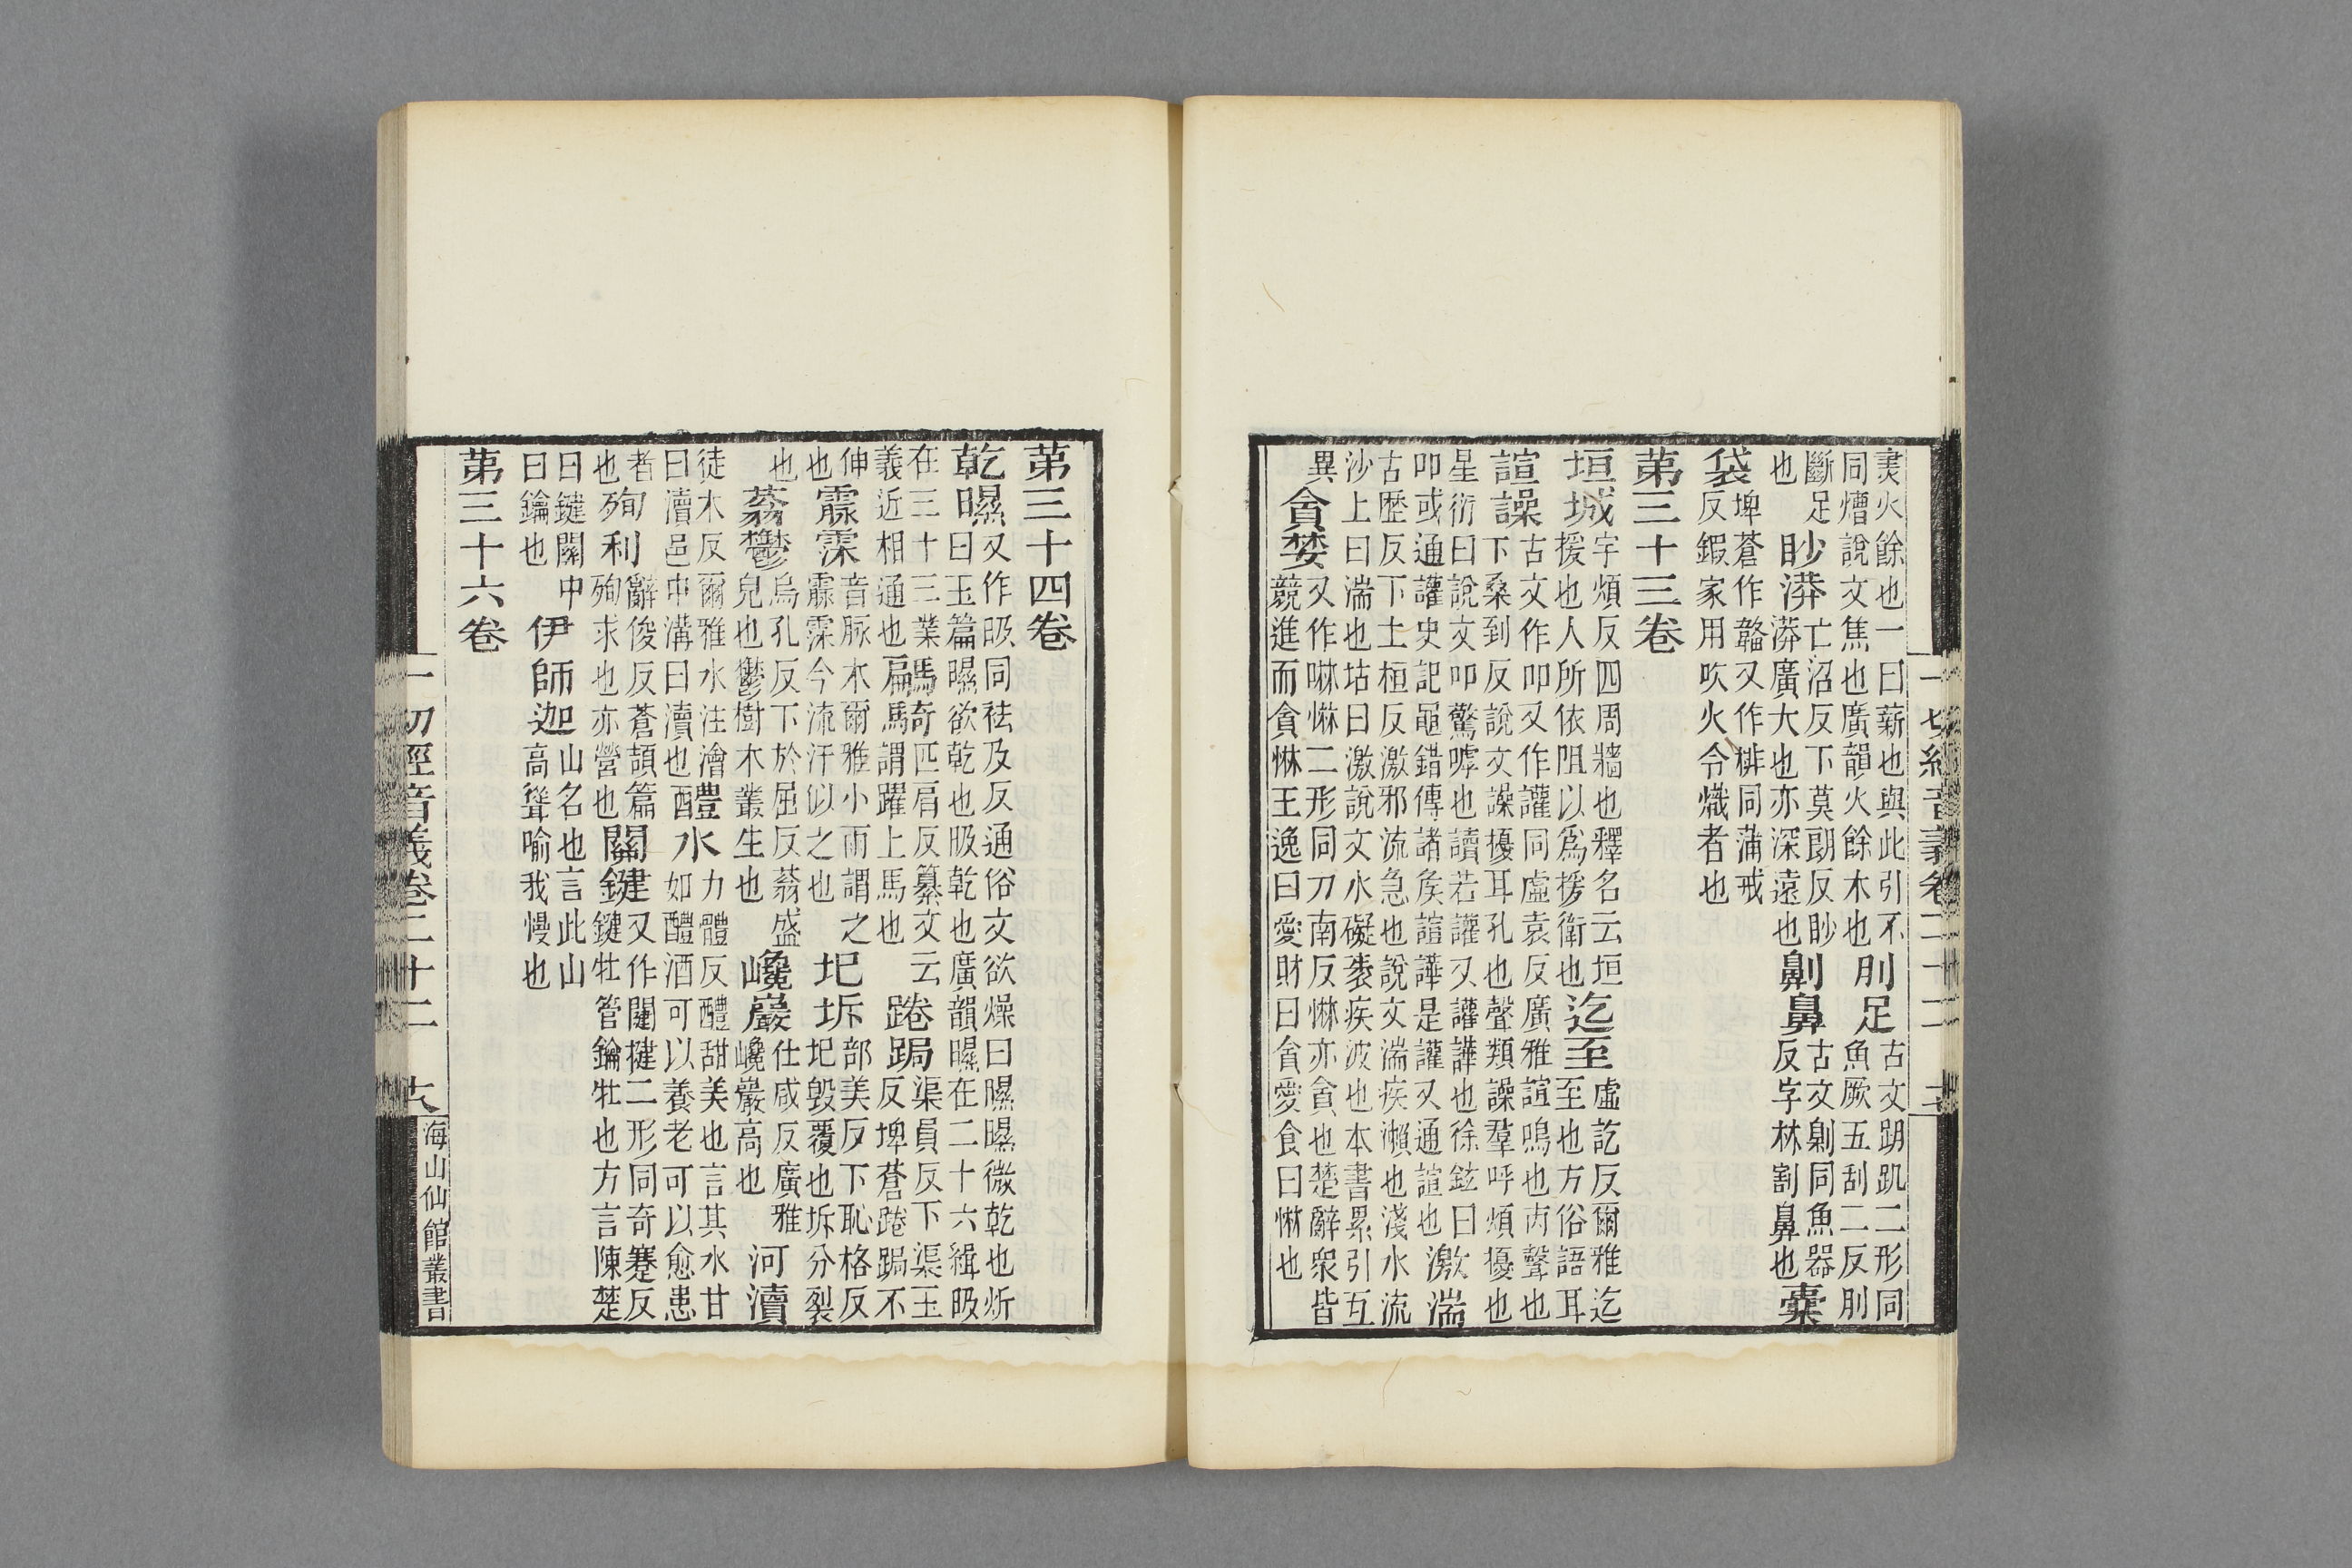 㶳火餘也一曰薪也與此引不
同㷮說文焦也廣韻火餘木也
刖足
古文跀𧿁二形同
魚厥五刮二反刖
斷足
也
眇漭
亡沼反下莫朗反眇
漭廣大也亦深遠也
劓鼻
古文劓同魚器
反字林割鼻也
橐
袋
埤蒼作韛又作㰆同蒲戒
反鍜家用吹火令熾者也
第三十三卷
垣城
宇煩反四周牆也釋名云垣
援也人所依阻以爲援衛也
迄至
虛訖反爾雅迄
至也方俗語耳
諠譟
古文作吅又作讙同虛袁反廣雅諠鳴也㕯聲也
下桑到反說文譟擾耳孔也聲類譟羣呼煩擾也
星衍曰說文吅驚嘑也讀若讙又讙譁也徐鉉曰
吅或通讙史記鼂錯傳諸矦諠譁是讙又通諠也
激湍
古歷反下土桓反激邪流急也說文湍疾瀨也淺水流
沙上曰湍也坫曰激說文水礙衺疾波也本書累引互
異
貪婪
又作啉惏二形同刀南反惏亦貪也楚辭衆皆
競進而貪惏王逸曰愛財曰貪愛食曰惏也
一切經音義卷二十二
第三十四卷
乾㬠
又作㫺同祛及反通俗文欲燥曰㬠㬠微乾也炘
曰玉篇㬠欲乾也㫺乾也廣韻㬠在二十六緝㫺
在三十三業
義近相通也
騗騎
匹扇反纂文云
騗馬謂躍上馬也
踡跼
渠員反下渠玉
反埤蒼踡跼不
伸
也
霡霂
音脉木爾雅小雨謂之
霡霂今流汗似之也
圮坼
部美反下恥格反
圮毀覆也坼分裂
也
蓊鬱
烏孔反下於屈反蓊盛
皃也鬱樹木叢生也
巉巖
仕咸反廣雅
巉巖高也
河瀆
徒木反爾雅水注澮
曰瀆邑中溝曰瀆也
醴水
力體反醴甜美也言其水甘
如醴酒可以養老可以愈患
者
也
殉利
辭俊反蒼頡篇
殉求也亦營也
關鍵
又作闥揵二形同奇蹇反
鍵牡管鑰牡也方言陳楚
曰鍵關中
曰鑰也
伊師迦
山名也言此山
高聳喻我慢也
第三十六卷
一切經音義卷二十二
六
海山仙館叢書